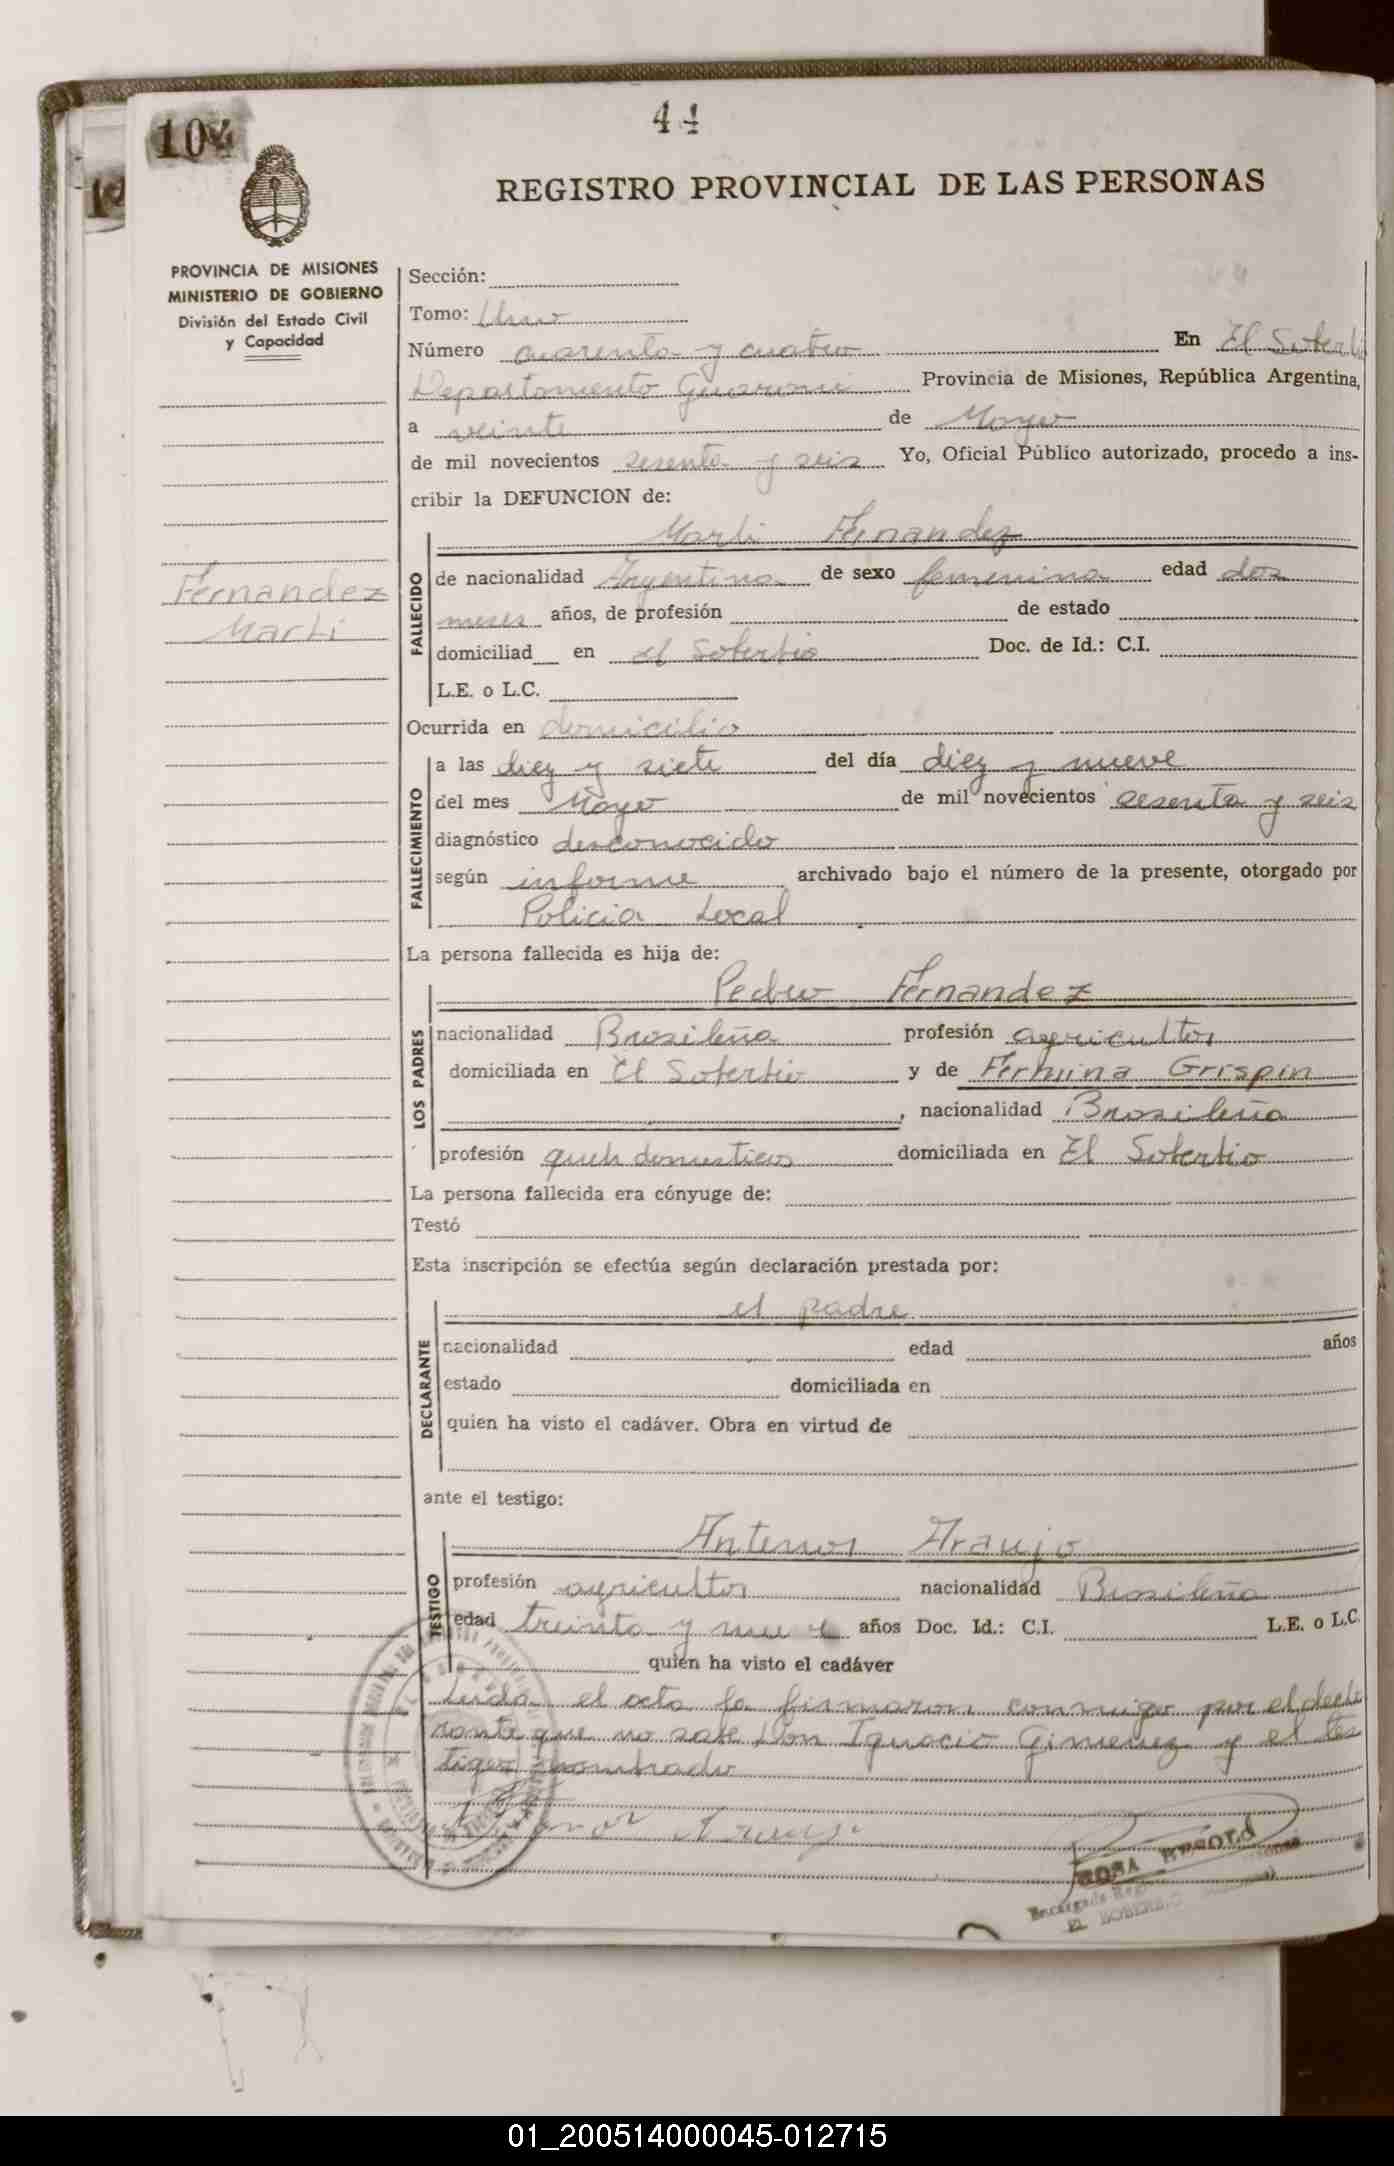 44
104
REGISTRO PROVINCIAL DE LAS PERSONAS
PROVINCIA DE MISIONES
MINISTERIO DE GOBIERNO
División del Estado Civil
y Capacidad
Fernandez
Marli
Sección:
Tomo: Uno
Número cuarenta y cuatro En El Soberbio
Departamento Guarani Provincia de Misiones, República Argentina,
a veinte de Mayo
de mil novecientos sesenta y seis Yo, Oficial Público autorizado, procedo a ins-
cribir la DEFUNCION de:
Marli Fernandez
FALLECIDO
de nacionalidad Argentina de sexo femenina edad dos
meses años, de profesión de estado
domiciliad en el Soberbio Doc. de Id.: C.I.
L.E. o L.C.
Ocurrida en domicilio
FALLECIMIENTO
a las diez y siete del día diez y nueve
del mes Mayo de mil novecientos sesenta y seis
diagnóstico desconocido
según informe archivado bajo el número de la presente, otorgado por
Policia Local
La persona fallecida es hija de:
Pedro Fernandez
LOS PADRES
nacionalidad Brasileña profesión agricultor
domiciliada en El Soberbio y de Fermina Crispin
, nacionalidad Brasileña
profesión queh domesticos domiciliada en El Soberbio
La persona fallecida era cónyuge de:
Testó
Esta inscripción se efectúa según declaración prestada por:
el padre
DECLARANTE
nacionalidad edad años
estado domiciliada en
quien ha visto el cadáver. Obra en virtud de
ante el testigo:
Antenor Araujo
TESTIGO
profesión agricultor nacionalidad Brasileña
edad treinta y años Doc. Id.: C.I. L.E. o L.C.
quien ha visto el cadáver
Leida el acta la firmaron conmigo por el decla
rante que no sabe Don Ignacio Gimenez y el tes
tigo nombrado
Araujo
ROSA
EL SOBERBIO
01_200514000045-012715